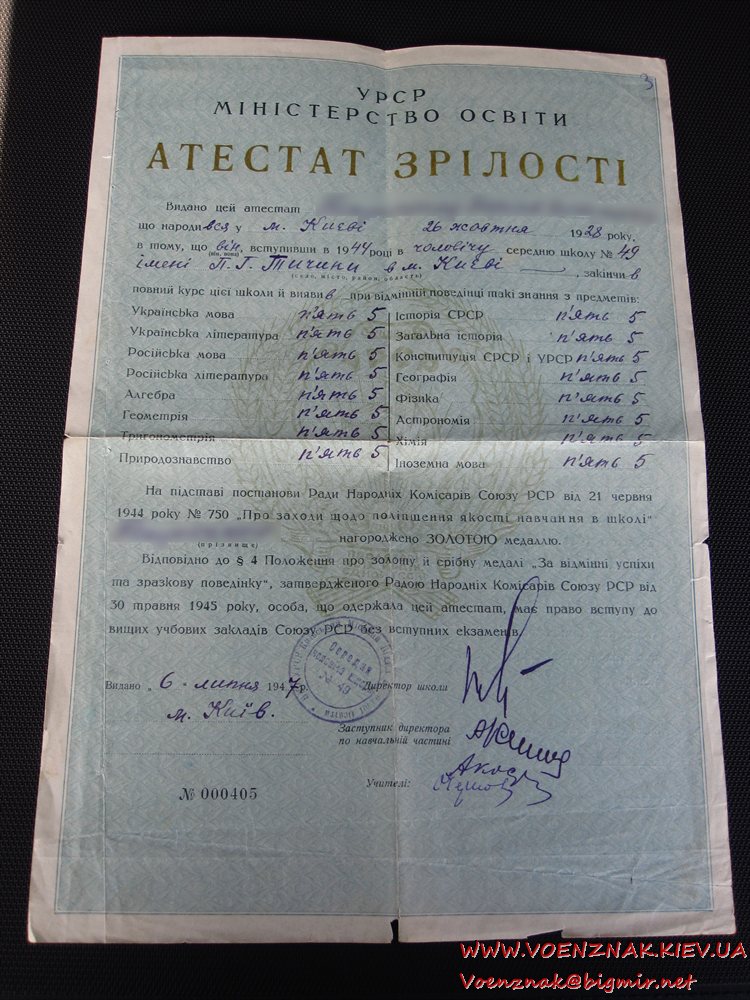 3
УРСР
МІНІСТЕРСТВО ОСВІТИ
АТЕСТАТ ЗРІЛОСТІ
Видано цей атестат
що народився у м. Києві 26 жовтня 1928 року,
в тому, що він, вступивши в 1944 році в чоловічу середню школу № 49
(він, вона)
імені П. Г. Тичини в м. Києві, закінчив
(село, місто, район, область)
повний курс цієї школи й виявив при відмінній поведінці такі знання з предметів:
Українська мова п'ять 5
Українська література п'ять 5
Російська мова п'ять 5
Російська література п'ять 5
Алгебра п'ять 5
Геометрія п'ять 5
Тригонометрія п'ять 5
Природознавство п'ять 5
Історія СРСР п'ять 5
Загальна історія п'ять 5
Конституція СРСР і УРСР п'ять 5
Географія п'ять 5
Фізика п'ять 5
Астрономія п'ять 5
Хімія п'ять 5
Іноземна мова п'ять 5
На підставі постанови Ради Народніх Комісарів Союзу РСР від 21 червня
1944 року № 750 „Про заходи щодо поліпшення якості навчання в школі"
нагороджено ЗОЛОТОЮ медаллю.
(прізвище)
Відповідно до § 4 Положення про золоту й срібну медалі „За відмінні успіхи
та зразкову поведінку", затвердженого Радою Народніх Комісарів Союзу РСР від
30 травня 1945 року, особа, що одержала цей атестат, має право вступу до
вищих учбових закладів Союзу РСР без вступних екзаменів.
Середня
№ 49
Видано „6" липня 1947 р.
м. Київ.
Директор школи
Заступник директора
по навчальній частині
Учителі:
№ 000405
WWW.VOENZNAK.KIEV.UA
Voenznak@bigmir.net